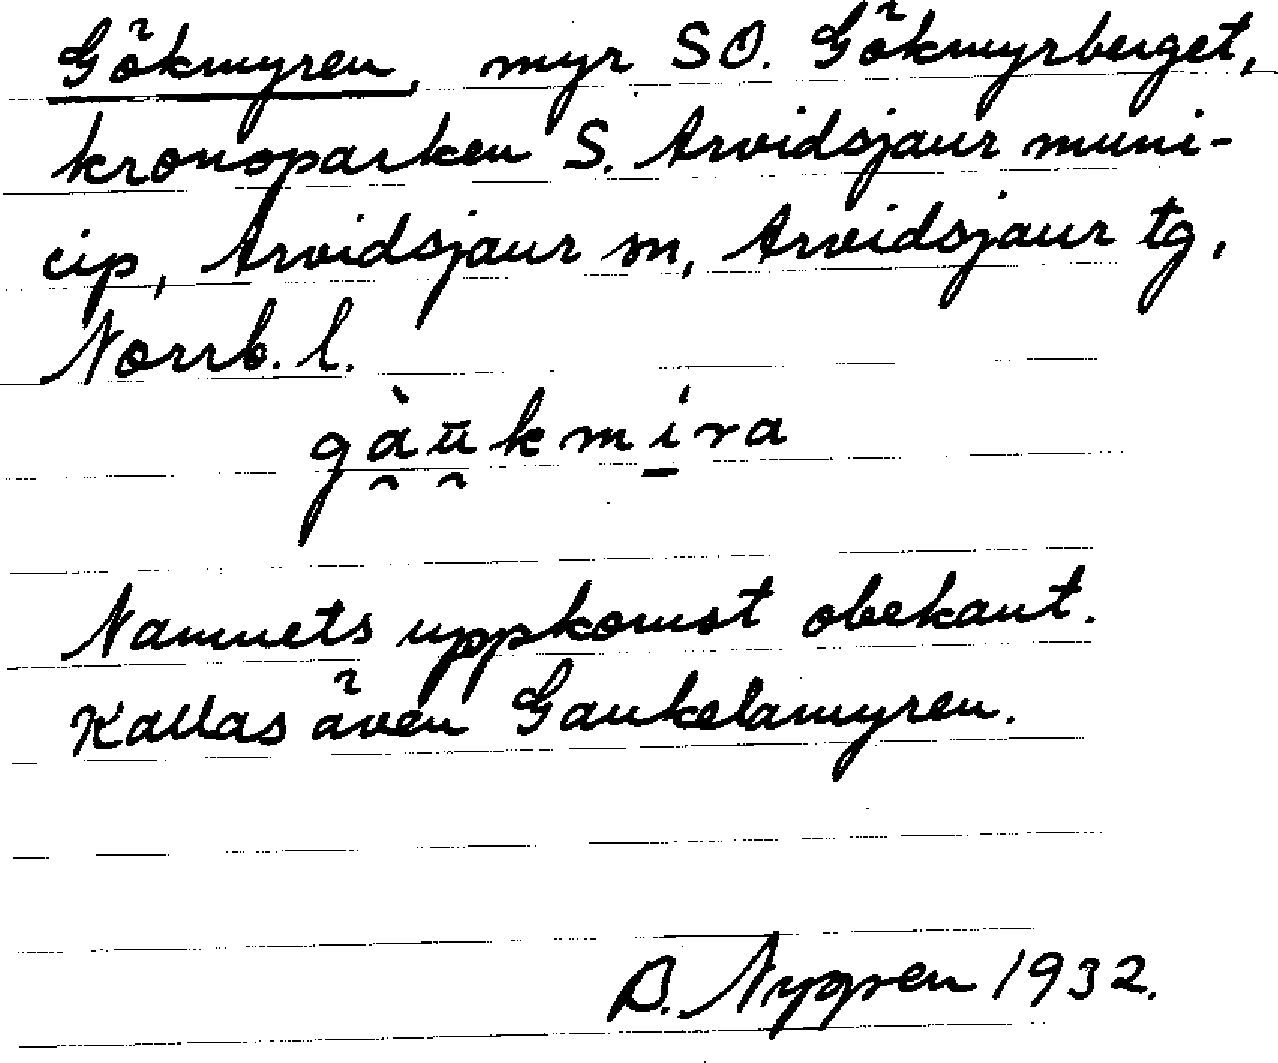 Gökmyren, myr SO. Gökmyrberget,
kronoparken S. Arvidsjaur muni-
cip, Arvidsjaur sn, Arvidsjaur tg,
Norrb. l.
gàu̅kmíra
Namnets uppkomst obekant.
Kallas även Gaukelamyren.
B. Nygren 1932.